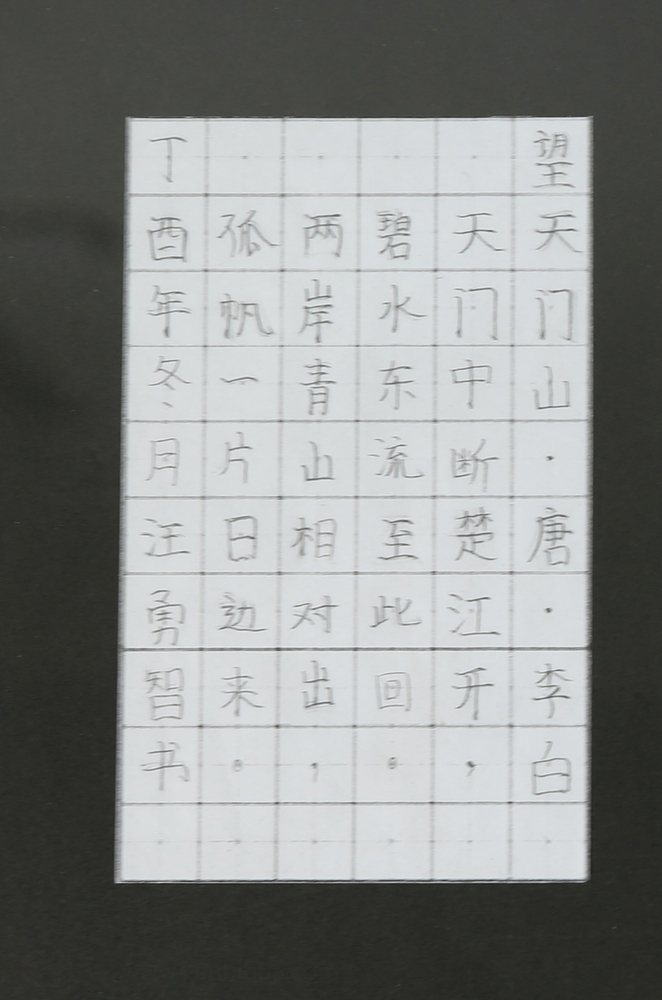 望天门山·唐·李白
天门中断楚江开，
碧水东流至此回。
两岸青山相对出，
孤帆一片日边来。
丁酉年冬月汪勇智书